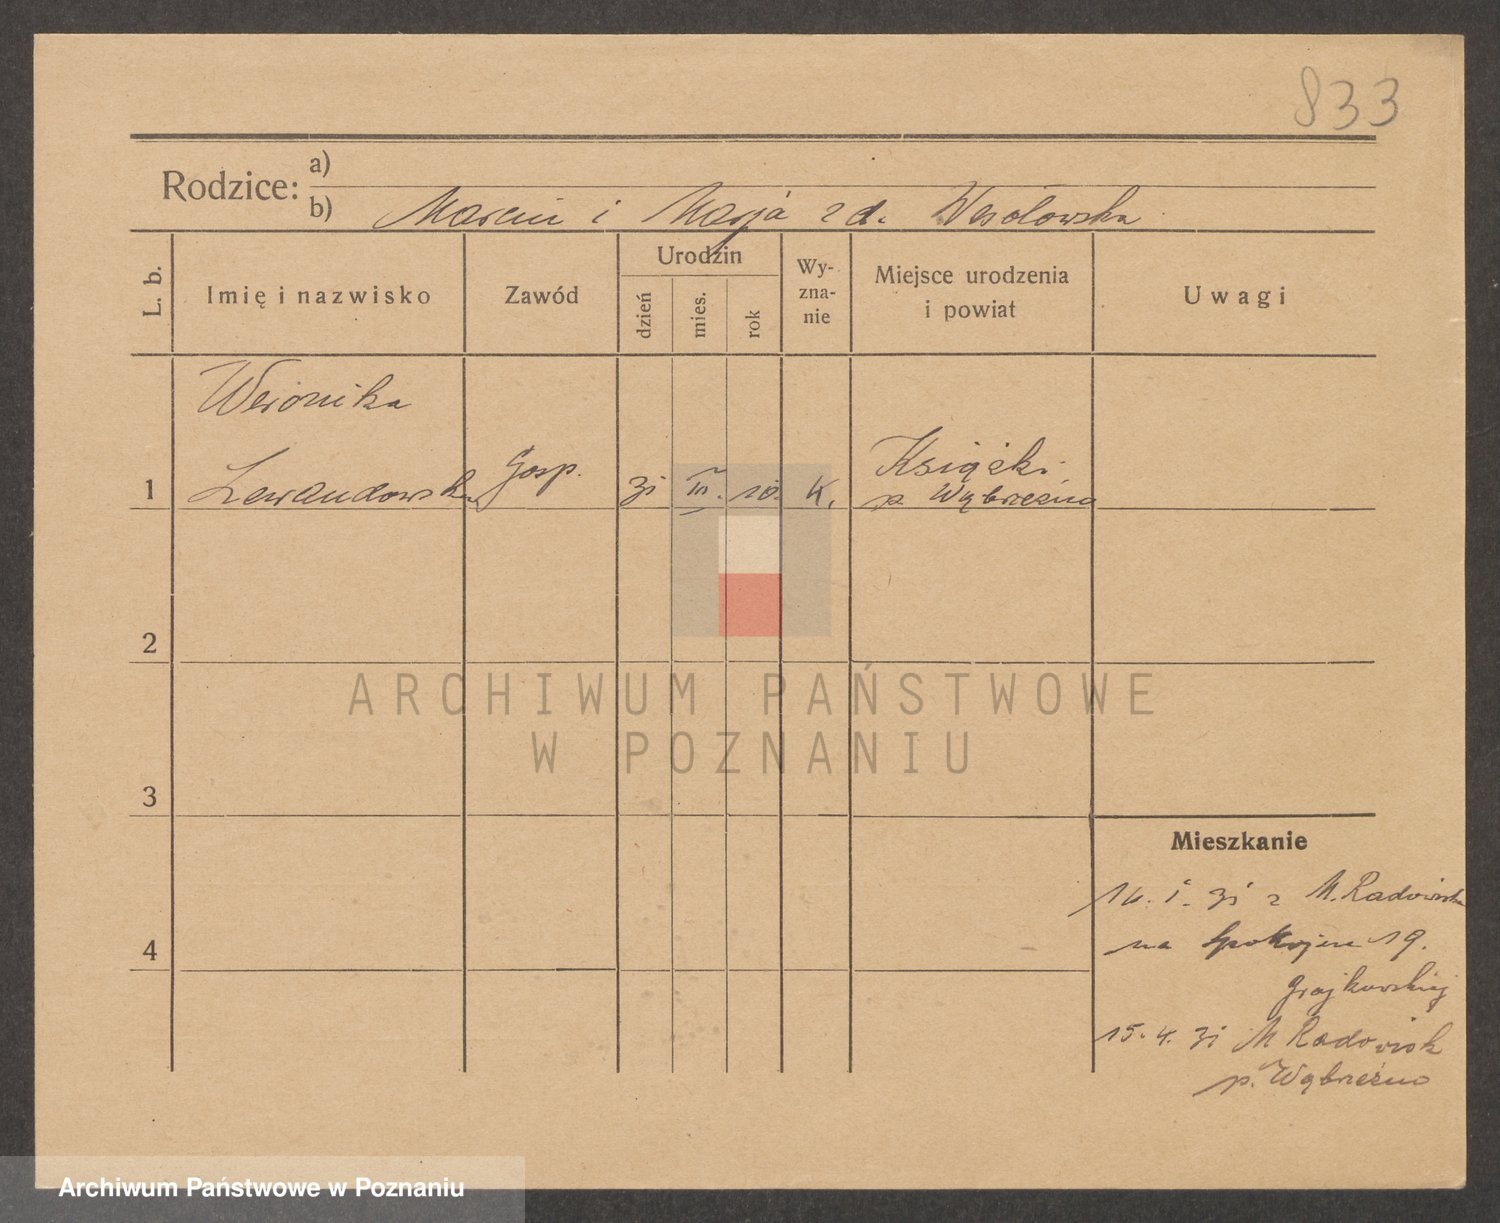 833
Rodzice: a)
b) Marcin i Marja z d. Wesołowska
L. b.
Imię i nazwisko
Zawód
Urodzin
dzień
mies.
rok
Wy-
zna-
nie
Miejsce urodzenia
i powiat
Uwagi
Weronika
1 Lewandowska Gosp. 31 III. 10. k. Książki
p. Wąbrzeźno
2
3
4
ARCHIWUM PAŃSTWOWE
W POZNANIU
Mieszkanie
M. Radowisk
na Spokojna 19.
Grajkowskiej
15. 4. 31 M Radowisk
p. Wąbrzeźno
Archiwum Państwowe w Poznaniu